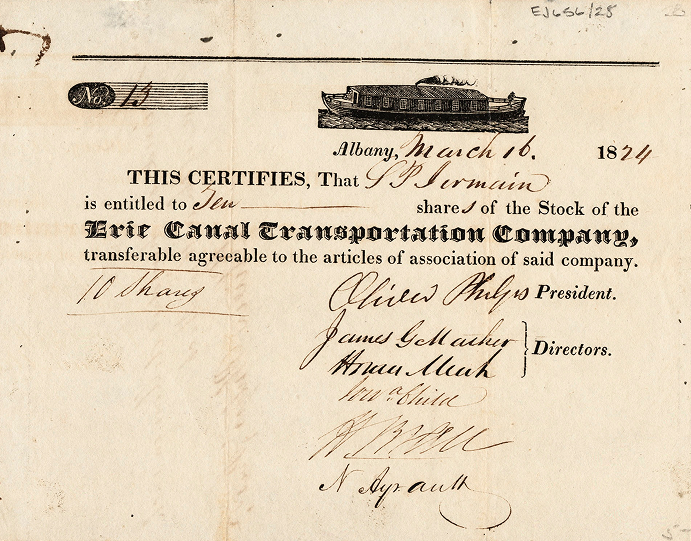 EJ6S6/25
No. 13
Albany, March 16. 1824
THIS CERTIFIES, That S P Jermain
is entitled to Ten shares of the Stock of the
Erie Canal Transportation Company,
transferable agreeable to the articles of association of said company.
10 Shares
Oliver Phelps President.
James G Mather
Directors.
Hiram Meech
Child
N Ayrault